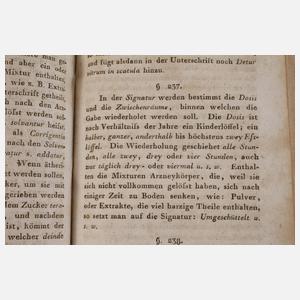 man ge-
und aber ein oder
Mixtur enthalten,
wie z. B. Extra
terschrift getheilt,
ch nach den Arz-
löst werden sol-
solvantur heisst.
als Corrigentia
ch den Solven-
tur s. addatur.
Wenn äther-
zt werden sollen,
cker, um sie mit
ergeben werden,
dem Zucker tere-
und nachdem
ist, kömmt der
welcher deinde
und fügt alsdann in der Unterschrift noch Detur
vitrum in scatula hinzu.
§ 237.
In der Signatur werden bestimmt die Dosis
und die Zwischenräume, binnen welchen die
Gabe wiederholet werden soll. Die Dosis ist
nach Verhältniſs der Jahre ein Kinderlöffel; ein
halber, ganzer, anderthalb bis höchstens zwey Eſs-
löffel. Die Wiederholung geschiehet alle Stun-
den, alle zwey, drey oder vier Stunden, auch
nur täglich drey- oder viermal u. s. w. Enthal-
ten die Mixturen Arzneykörper, die, weil sie
sich nicht vollkommen gelöset haben, sich nach
einiger Zeit zu Boden senken, wie: Pulver
oder Extrakte, die viel harzige Theile enthalten,
so setzt man auf die Signatur: Umgeschüttelt u.
s. w.
§. 238.